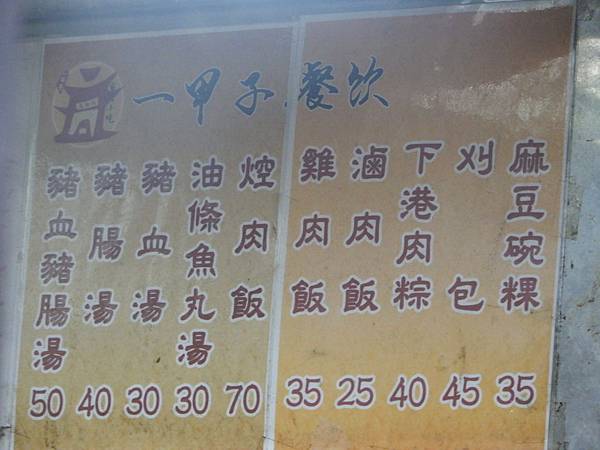 一甲子餐飲
麻豆碗粿 35
刈包 45
下港肉粽 40
滷肉飯 25
雞肉飯 35
焢肉飯 70
油條魚丸湯 30
豬血湯 30
豬腸湯 40
豬血豬腸湯 50